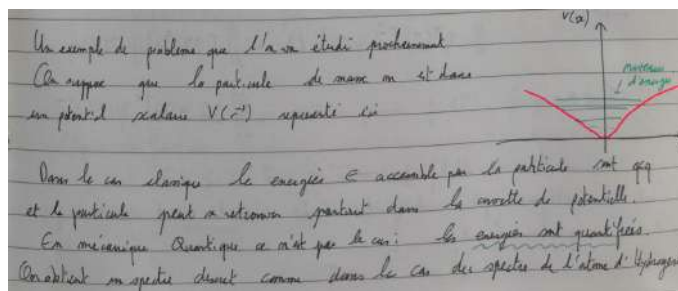 Un exemple de problème que l'on va étudi prochainement
V(x)
On suppose que la particule de masse m est dans
niveaux d'énergie
un potentiel scalaire V(r⃗) représenté ici
Dans le cas classique les energies E accessible par la particule sont qcq
et la particule peut se retrouver partout dans la cuvette de potentielle.
En mécanique Quantique ce n'est pas le cas : les energies sont quantifiées.
On obtient un spectre discret comme dans le cas des spectre de l'atome d'Hydrogène